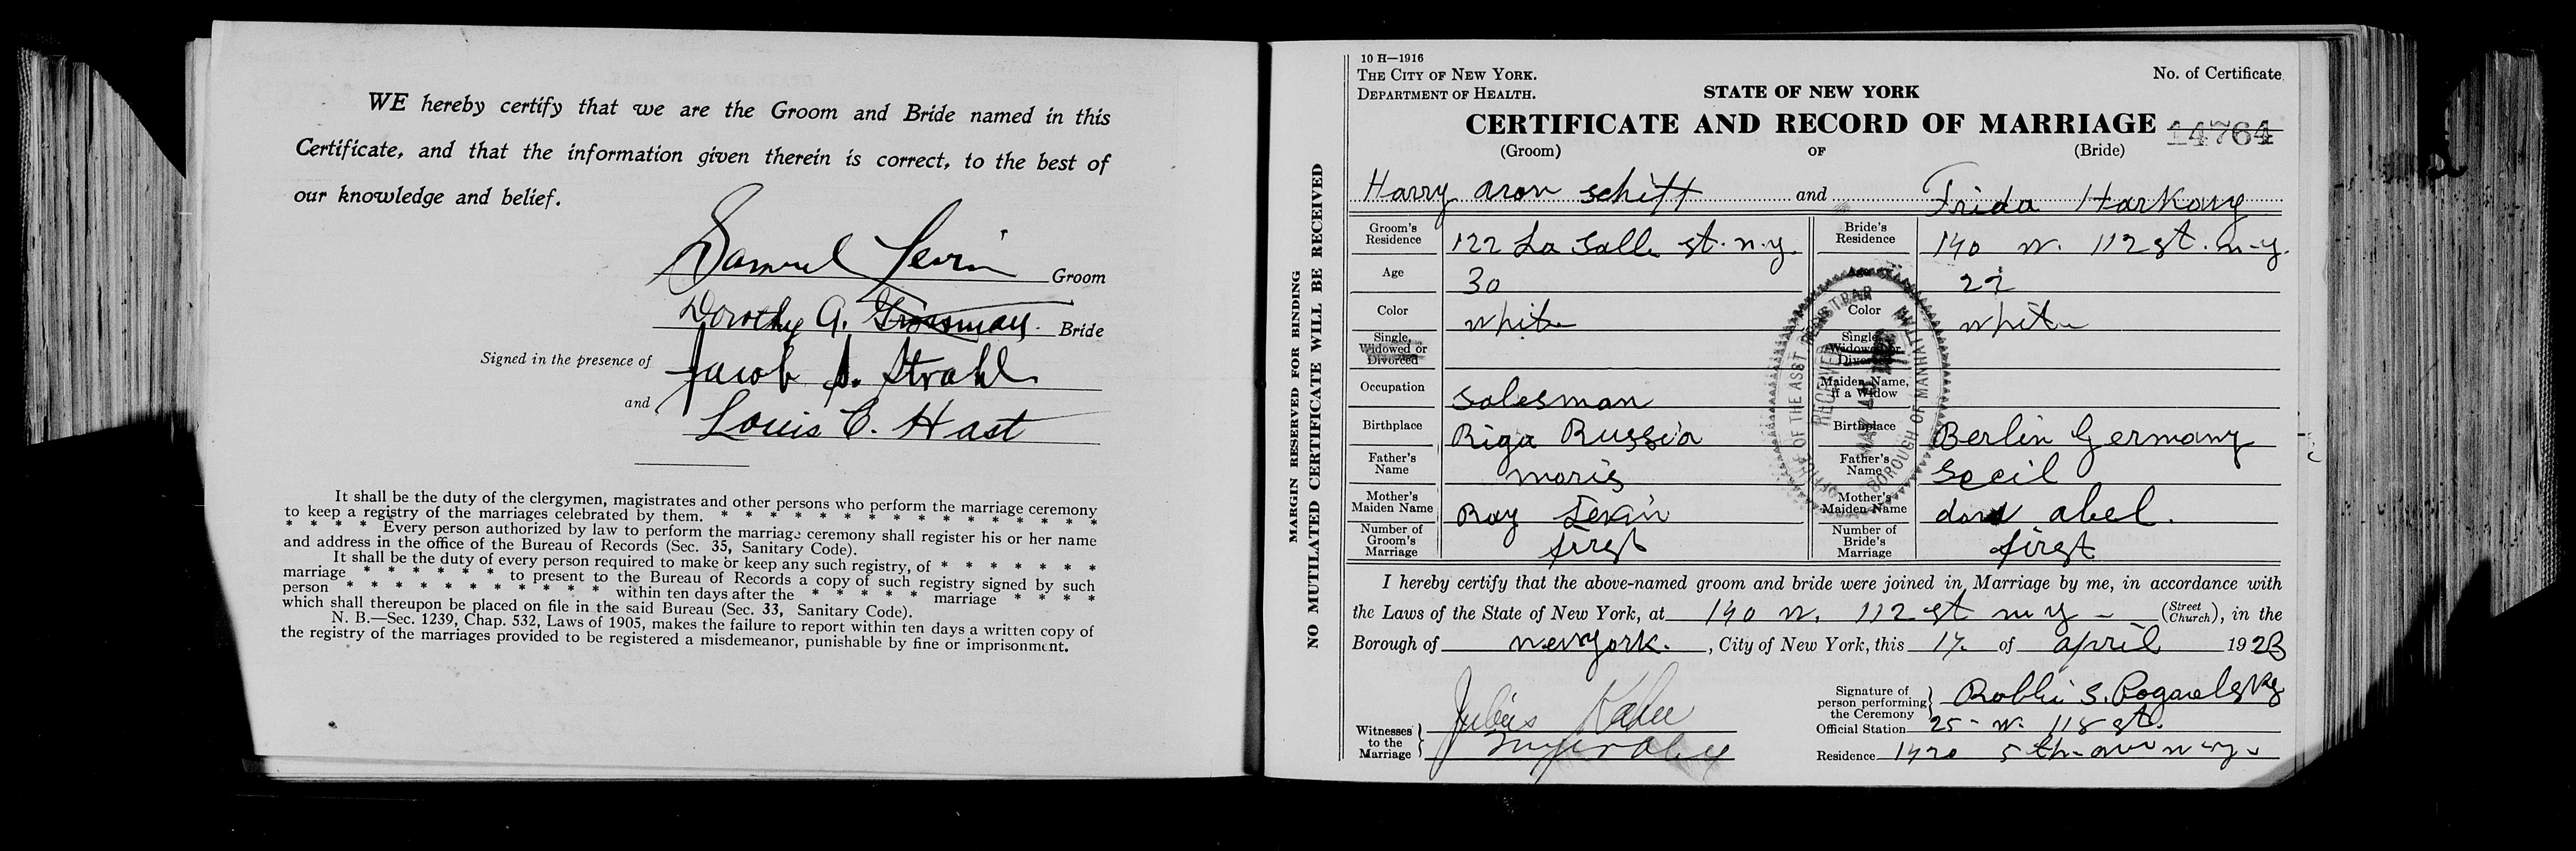 WE hereby certify that we are the Groom and Bride named in this
Certificate, and that the information given therein is correct, to the best of
our knowledge and belief.
Samuel Levin Groom
Dorothy A. Grossman. Bride
Signed in the presence of Jacob S. Strahl
and Louis C. Hast
It shall be the duty of the clergymen, magistrates and other persons who perform the marriage ceremony
to keep a registry of the marriages celebrated by them. * * * * * * * * * * * * * * *
* * * * Every person authorized by law to perform the marriage ceremony shall register his or her name
and address in the office of the Bureau of Records (Sec. 35, Sanitary Code).
It shall be the duty of every person required to make or keep any such registry, of * * * * * * *
marriage * * * * * * * to present to the Bureau of Records a copy of such registry signed by such
person * * * * * * * * * * * within ten days after the * * * * * marriage * * * *
which shall thereupon be placed on file in the said Bureau (Sec. 33, Sanitary Code).
N. B.—Sec. 1239, Chap. 532, Laws of 1905, makes the failure to report within ten days a written copy of
the registry of the marriages provided to be registered a misdemeanor, punishable by fine or imprisonment.
MARGIN RESERVED FOR BINDING
NO MUTILATED CERTIFICATE WILL BE RECEIVED
10 H—1916
THE CITY OF NEW YORK.
DEPARTMENT OF HEALTH.
STATE OF NEW YORK
No. of Certificate
CERTIFICATE AND RECORD OF MARRIAGE 14764
(Groom) OF (Bride)
Harry aron schiff and Frida Harkavy
Groom's Residence 122 La Salle st. n.y. Bride's Residence 140 W. 112 st. n-y.
Age 30 22
Color white Color white
Single, Widowed or Divorced Single, Widowed or Divorced
Occupation salesman Maiden Name, if a Widow
Birthplace Riga Russia Birthplace Berlin Germany
Father's Name moris Father's Name Secil
Mother's Maiden Name Ray Levin Mother's Maiden Name abel.
Number of Groom's Marriage first Number of Bride's Marriage first
OFFICE OF THE ASST REGISTRAR
RECEIVED
BOROUGH OF MANHATTAN
I hereby certify that the above-named groom and bride were joined in Marriage by me, in accordance with
the Laws of the State of New York, at 140 W. 112 st n y - (Street Church), in the
Borough of newyork. , City of New York, this 17. of april 1923
Witnesses to the Marriage Julius Kahn
Signature of person performing the Ceremony Rabbi S.
Official Station 25- W. 118 st.
Residence 1420 5th ave n-y-